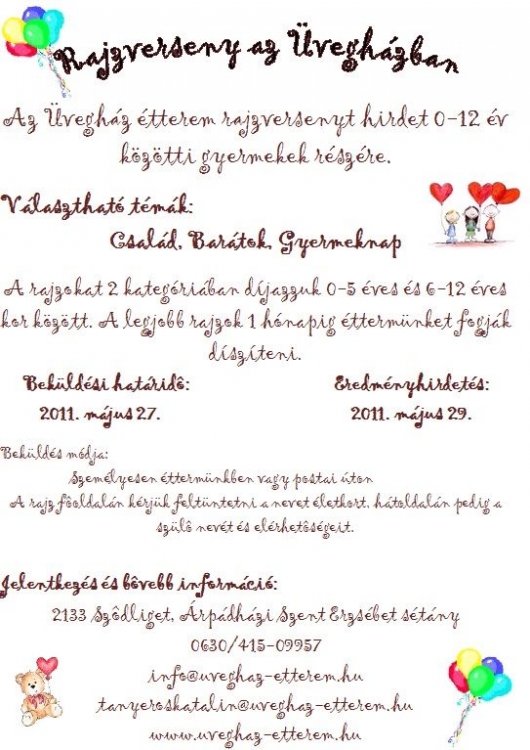 Rajzverseny az Üvegházban
Az Üvegház étterem rajzversenyt hirdet 0-12 év
közötti gyermekek részére.
Választható témák:
Család, Barátok, Gyermeknap
A rajzokat 2 kategóriában díjazzuk 0-5 éves és 6-12 éves
kor között. A legjobb rajzok 1 hónapig éttermünket fogják
díszíteni.
Beküldési határidô: Eredményhirdetés:
2011. május 27. 2011. május 29.
Beküldés módja:
Személyesen éttermünkben vagy postai úton
A rajz fôoldalán kérjük feltüntetni a nevet életkort, hátoldalán pedig a
szülô nevét és elérhetôségeit.
Jelentkezés és bôvebb információ:
2133 Szôdliget, Árpádházi Szent Erzsébet sétány
0630/415-09957
info@uveghaz-etterem.hu
tanyeroskatalin@uveghaz-etterem.hu
www.uveghaz-etterem.hu